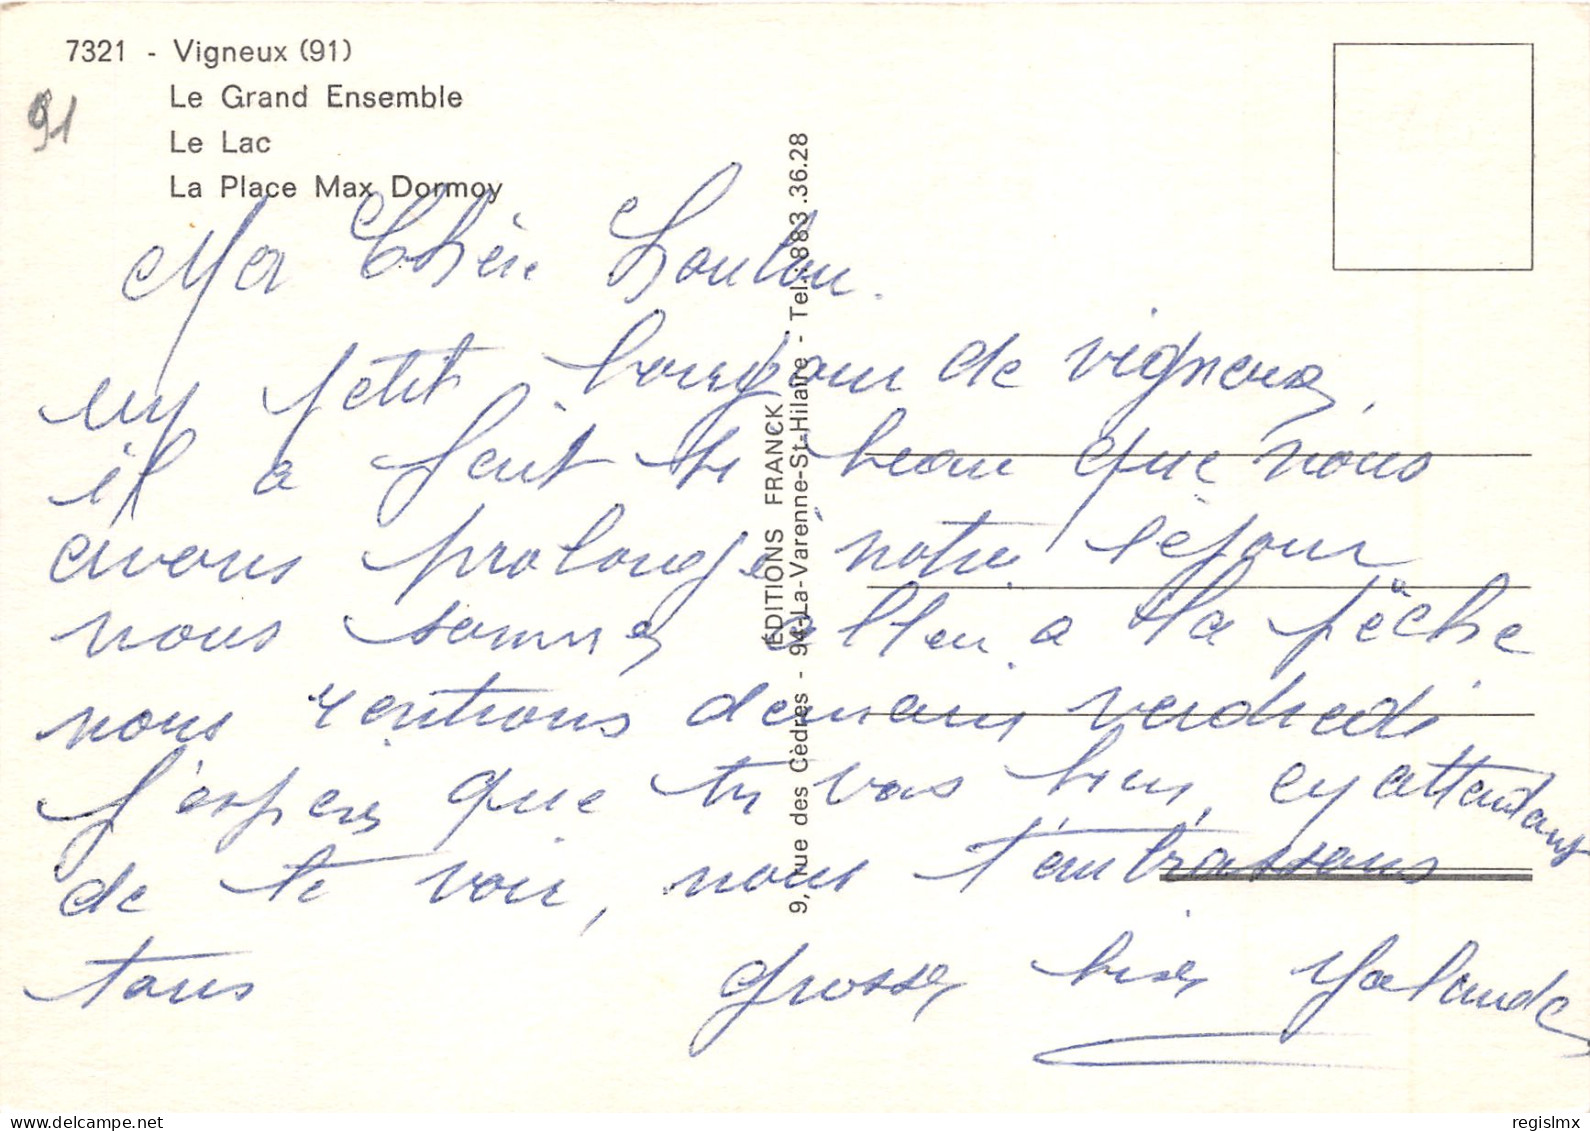 7321 - Vigneux (91)
Le Grand Ensemble
Le Lac
La Place Max Dormoy
91
ÉDITIONS FRANCK
9, rue des Cèdres - 94-La-Varenne-St-Hilaire - Tel.: 883.36.28
Ma Chère Loulou.
un petit bonjour de vigneux,
il a fait si beau que nous
avons prolongé notre séjour
nous sommes aller a la pêche
nous rentrons demain vendredi
j'espere que tu vas bien, en attendant
de te voir, nous t'embrassons
tous grosses bises Yolande
regislmx